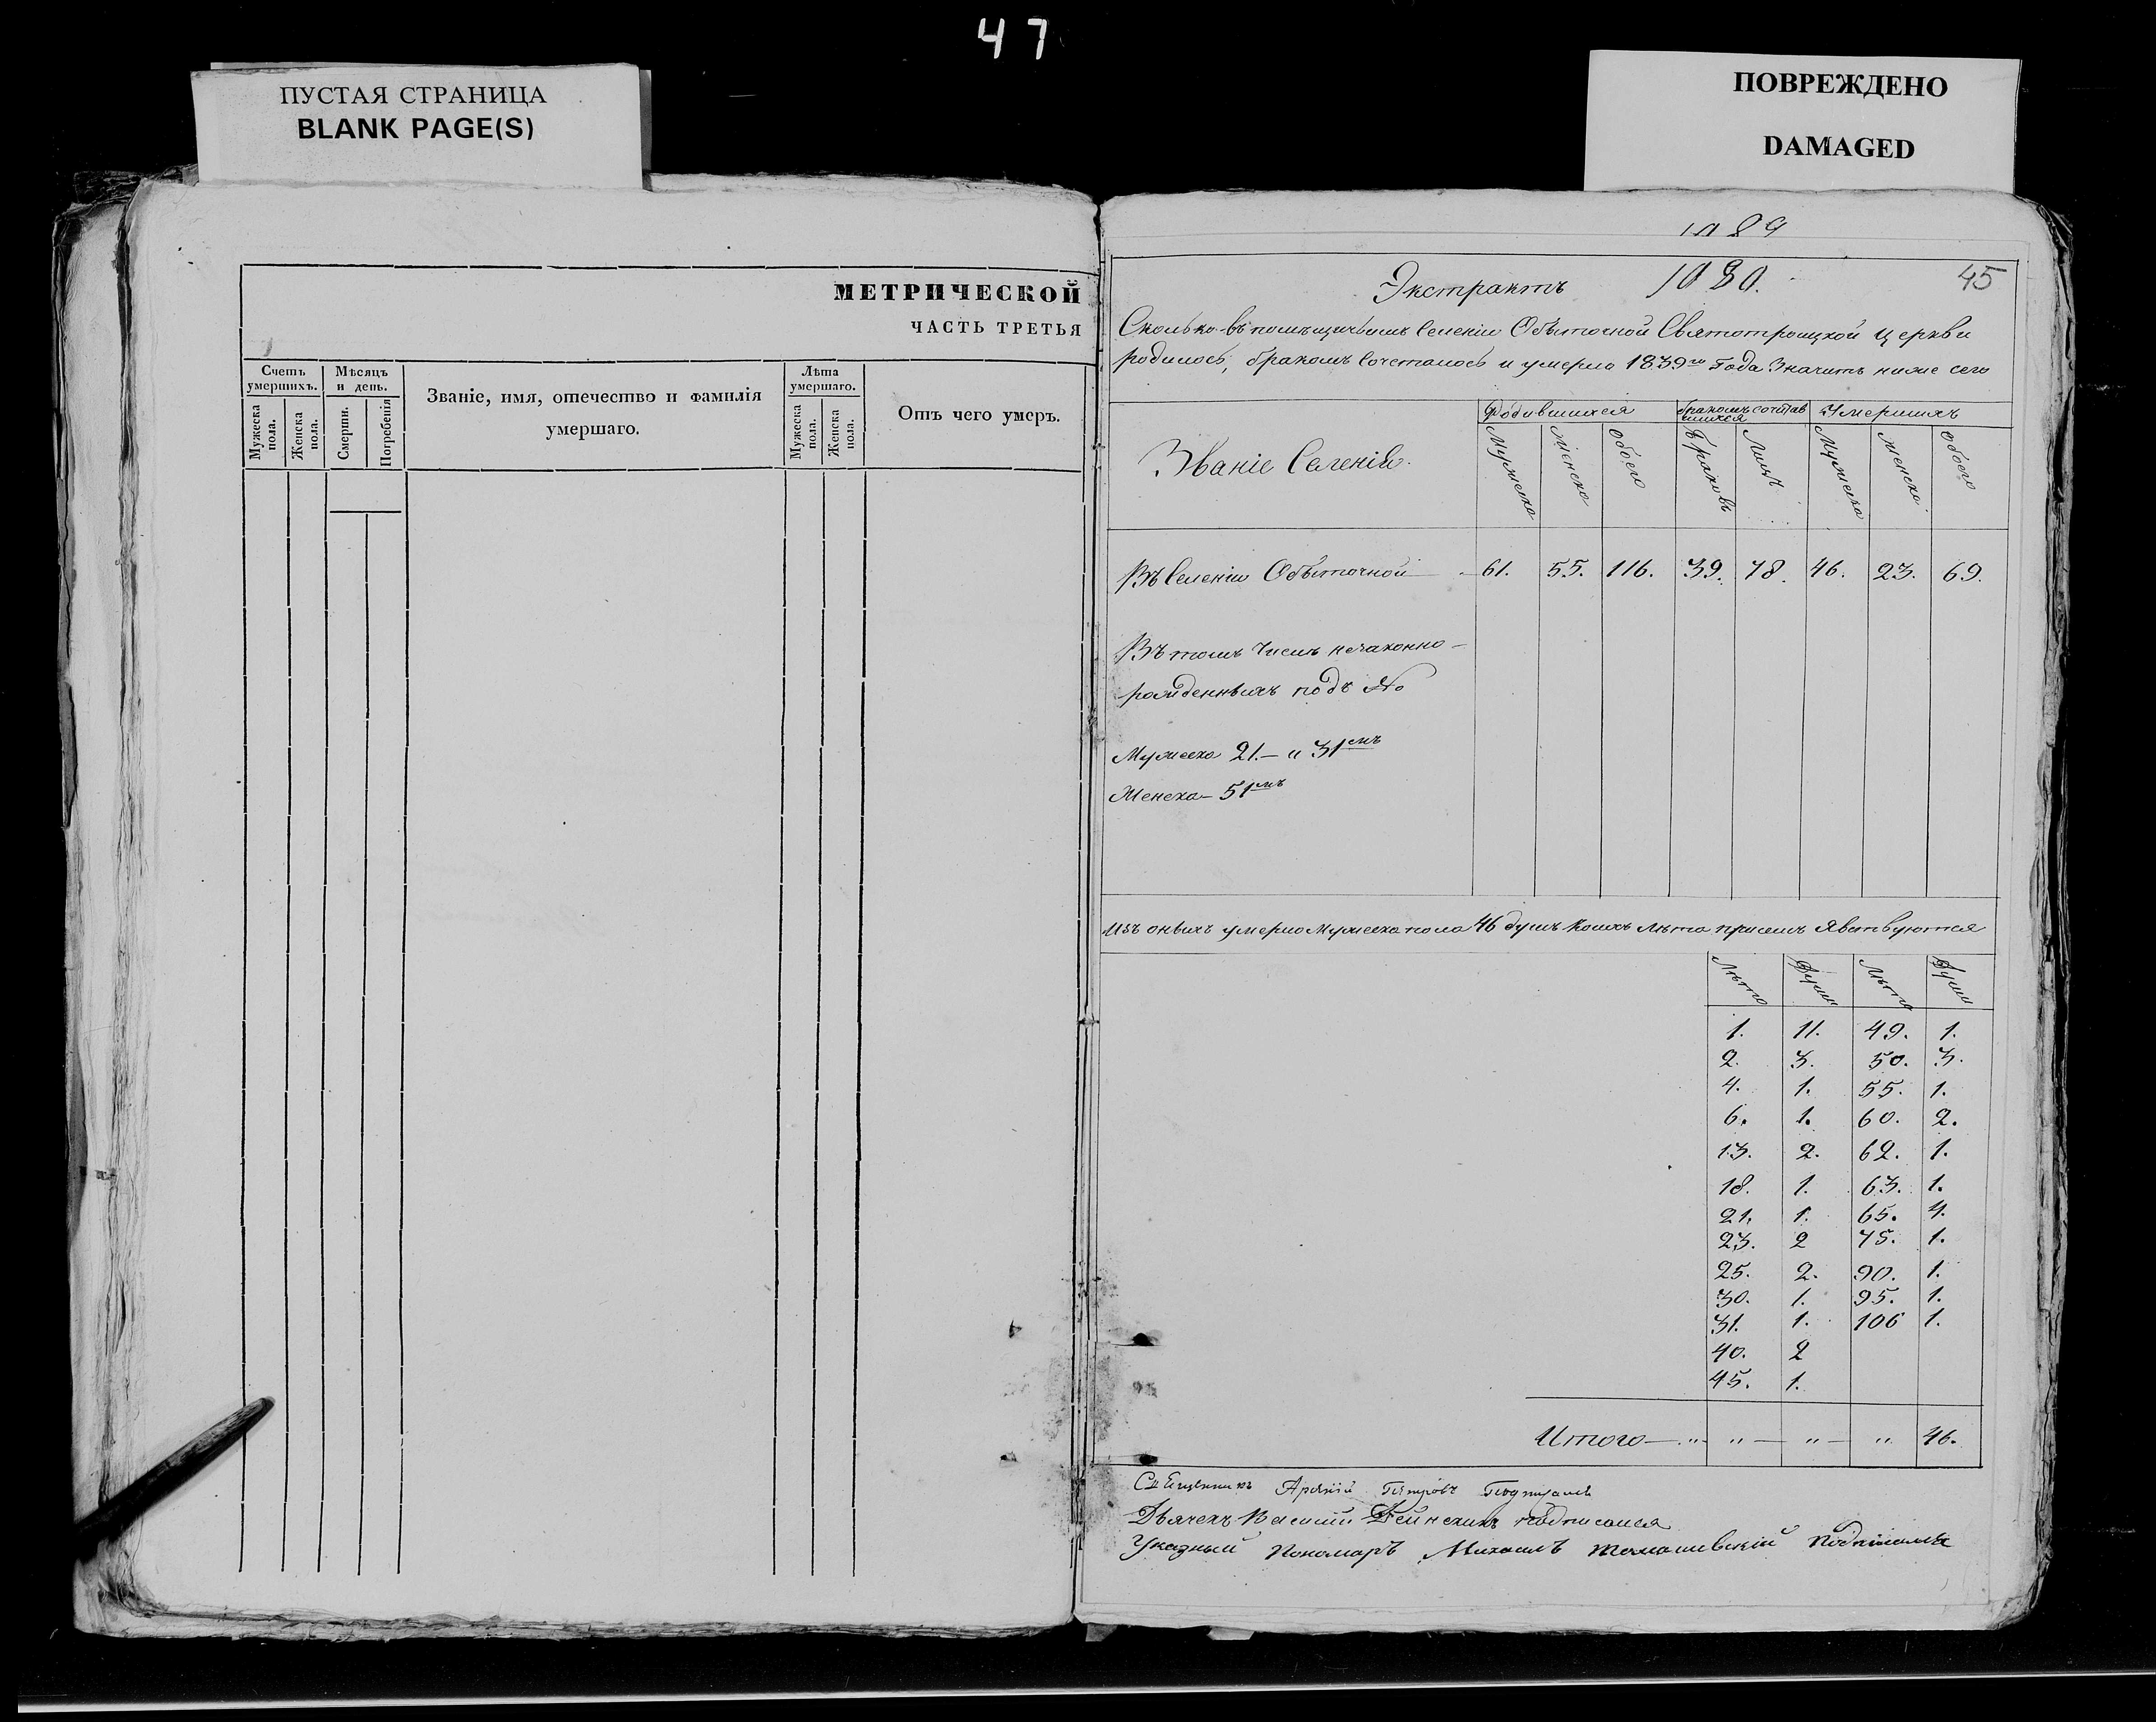 47
ПУСТАЯ СТРАНИЦА
BLANK PAGE(S)
ПОВРЕЖДЕНО
DAMAGED
МЕТРИЧЕСКОЙ
ЧАСТЬ ТРЕТЬЯ
Счетъ умершихъ.
Мужеска пола.
Женска пола.
Мѣсяцъ и день.
Смерши.
Погребенія
Званіе, имя, отечество и фамилія умершаго.
Лѣта умершаго.
Мужеска пола.
Женска пола.
Отъ чего умеръ.
45
Экстрактъ
Сколько въ помѣщичьемъ Селеніи Обыточной Святотроицкой церкви
родилось, бракомъ Сочеталось и умерло 1839го Года Значитъ ниже сего
Званіе Селеній.
Родившихся
бракомъ сочетавшихся
Умершихъ
Мужеска
женска
обоего
Браковъ
Лицъ
Мужеска
женска
обоего
Въ Селеніи Обыточной 61. 55. 116. 39. 78. 46. 23. 69.
Въ томъ Числѣ незаконно-
рожденныхъ подъ №
Мужеска 21.— и 31емъ
Женска— 51мъ
Изъ оныхъ умерло Мужеска пола 46 душъ коихъ лѣта
Лѣта Души Лѣта Души
1. 11. 49. 1.
2. 3. 50. 3.
4. 1. 55. 1.
6. 1. 60. 2.
13. 2. 62. 1.
18. 1. 63. 1.
21. 1. 65. 4.
23. 2 75. 1.
25. 2. 90. 1.
30. 1. 95. 1.
31. 1. 106 1.
40. 2
45. 1.
Итого — „ — „ — „ — „ 46.
Священникъ Петровъ
Дьячекъ Василій подписался
Указный Пономарь Михаилъ подписался